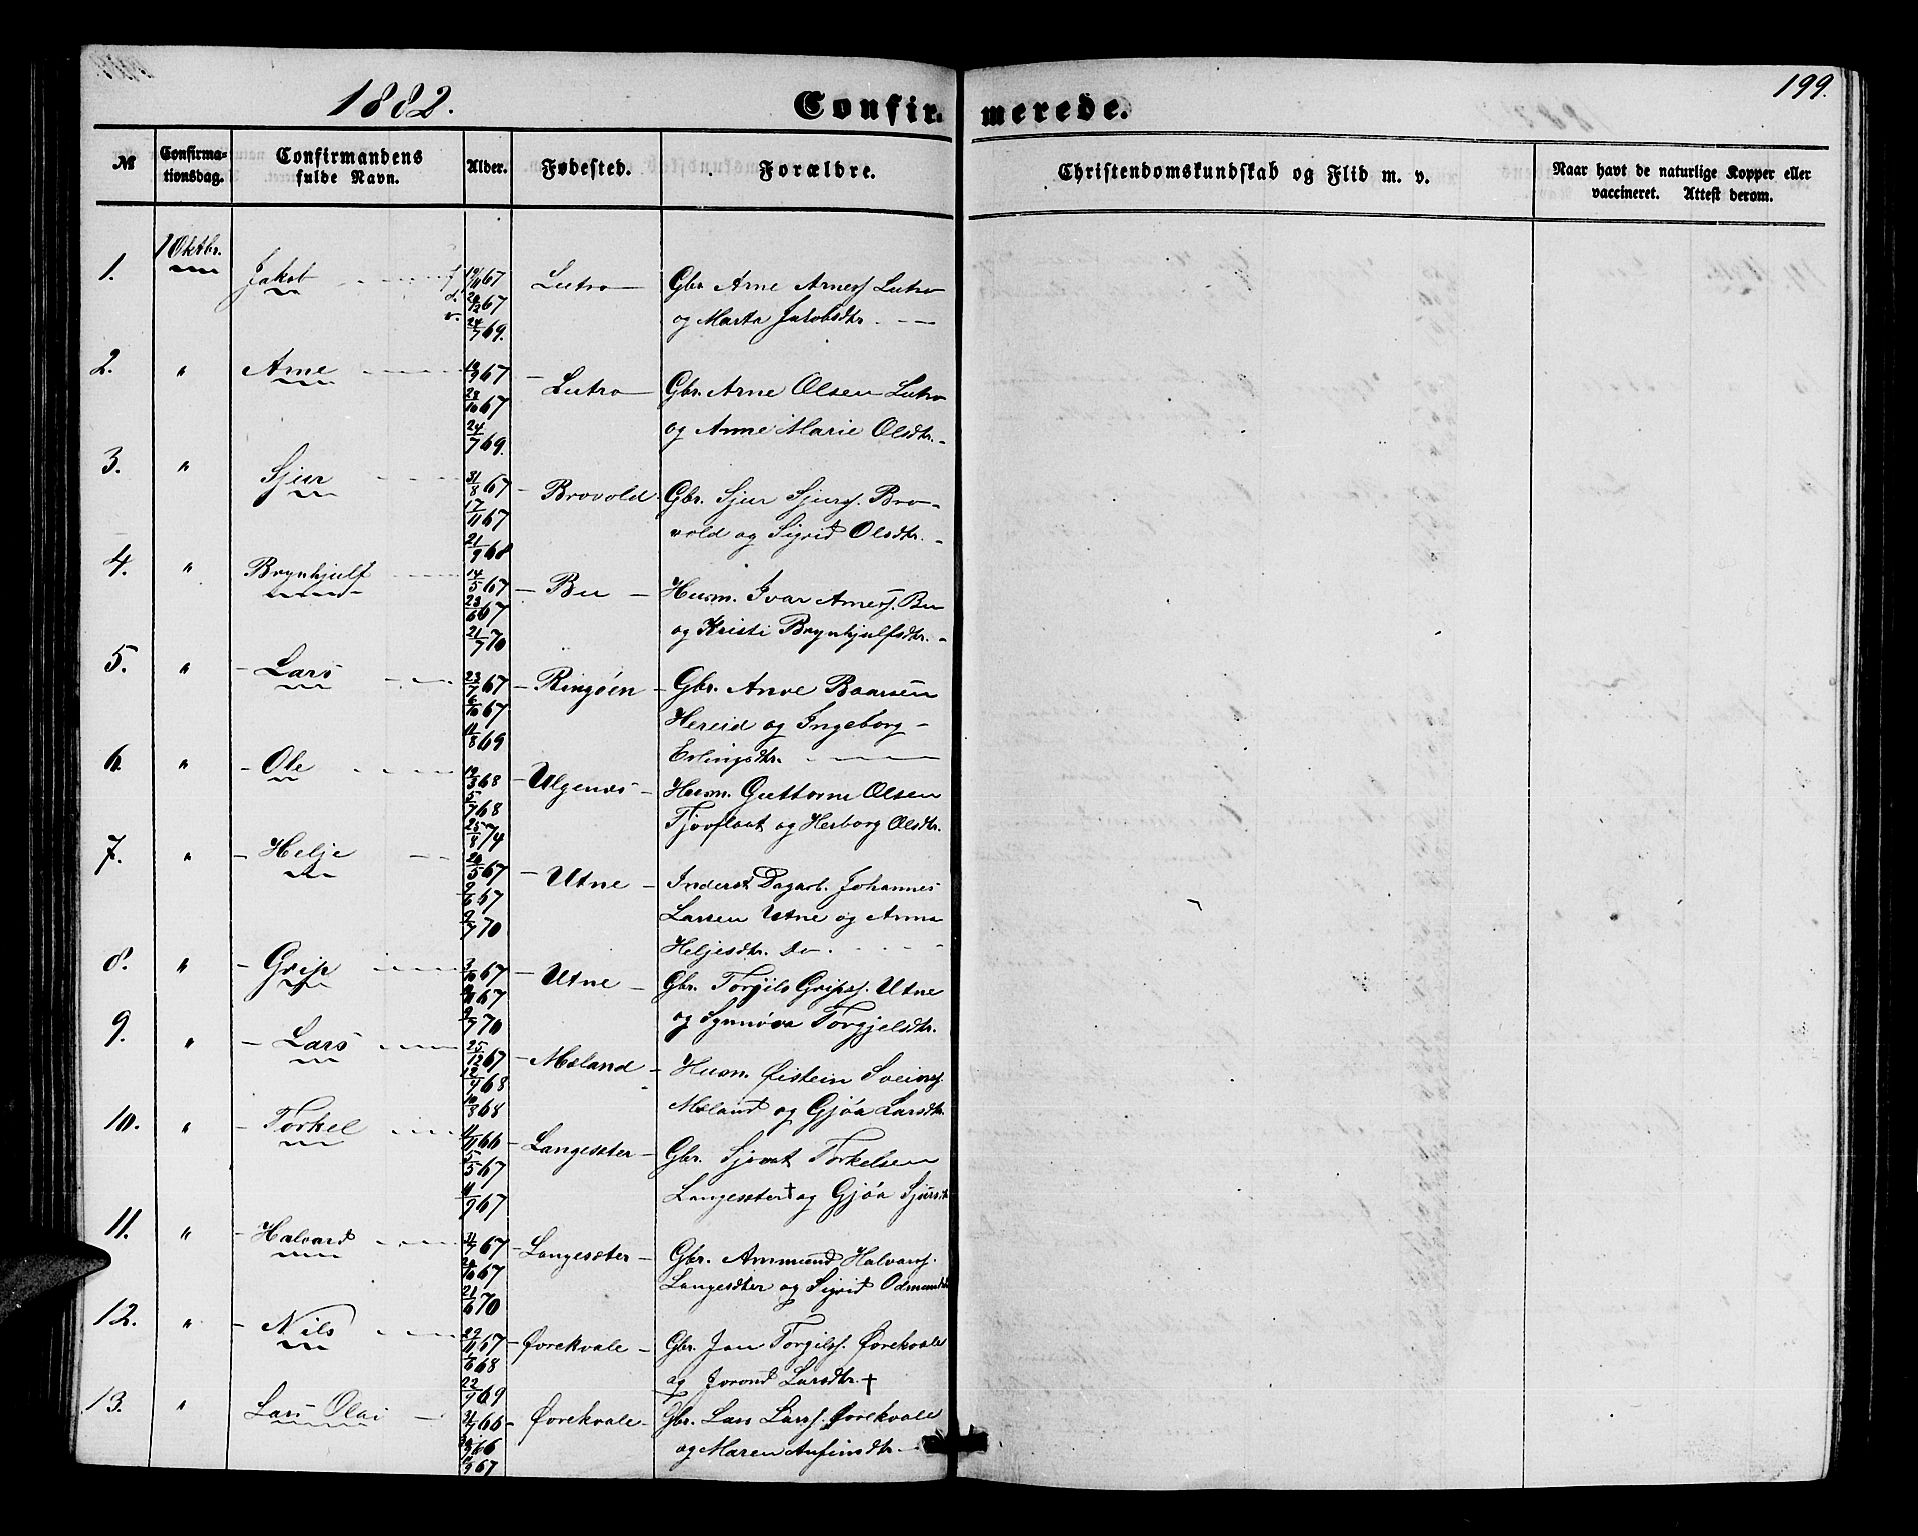 199.
1882. Confir- merede.
№ Confirma-tionsdag. Confirmandens fulde Navn. Alder. Fødested. Forældre. Christendomskundskab og Flid m. v. Naar havt de naturlige Kopper eller vaccineret. Attest derom.
1. 1 Oktbr. Jakob f. 67 Lutro Gbr. Arne Arness. Lutro
d. 67 og Marta Jakobsdtr.
v. 24/7 69.
2. " Arne 67 Lutro Gbr. Arne Olsen Lutro
28/10 67 og Anne Marie Olsdtr.
24/7 69.
3. " Sjur 31/8 67 Brovold Gbr. Sjur Sjurs. Bro-
17/11 67 vold og Sigrid Olsdtr.
21/9 68
4. " Brynhjulf 14/5 67 Bu Husm. Ivar Arness. Bu
23/6 67 og Kristi Brynhjulfsdtr.
21/7 70
5. " Lars 23/7 67 Ringøen Gbr. Arve Baarsen
6/10 67 Hereid og Ingeborg
11/8 69 Erlingsdtr.
6. " Ole 68 Ulgenes Husm. Guttorm Olsen
5/7 68 Tjovflaat og Herborg Olsdtr.
25/8 74
7. " Helje 67 Utne Inderst Dagarb. Johannes
9/6 67 Larsen Utne og Anna
9/7 70 Heljesdtr. Do
8. " Grip 3/10 67 Utne Gbr. Torgils Grips. Utne
67 og Synnøva Torgjelsdtr.
9/7 70
9. " Lars 25/12 67 Mæland Husm. Øistein Sveins.
12/4 68 Mæland og Gjøa Larsdtr.
10/8 68
10. " Torkel 66 Langesæter Gbr. Sjovat Torkelsen
5/5 67 Langesæter † og Gjøa Sjursdtr
67
11. " Halvard 67 Langesæter Gbr. Ammund Halvars.
67 Langesæter og Sigrid Odmundsdtr
21/6 70
12. " Nils 22/11 67 Øvrekvale Gbr. Jon Torgils. Øvrekvale
68 og Jorond Larsdtr. †
22/9 69
13. " Lars Olai 66 Øvrekvale Gbr. Lars Larss. Øvrekvale
66 og Maren Anfinsdtr.
67